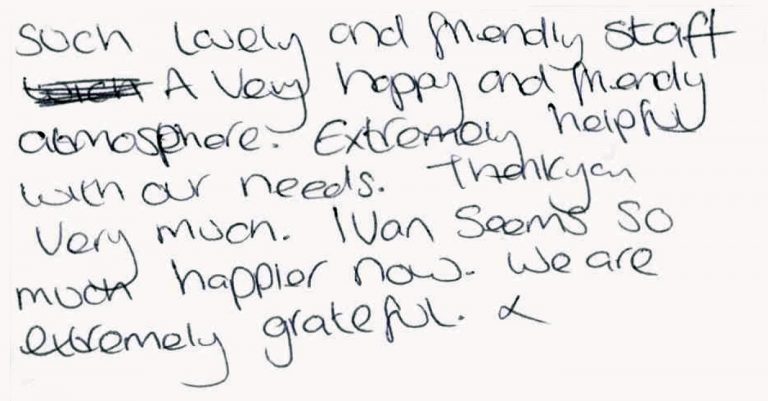 Such lovely and friendly staff
A Very happy and friendly
atmosphere. Extremely helpful
with our needs. Thankyou
Very much. Ivan Seems so
much happier now. We are
extremely grateful. x